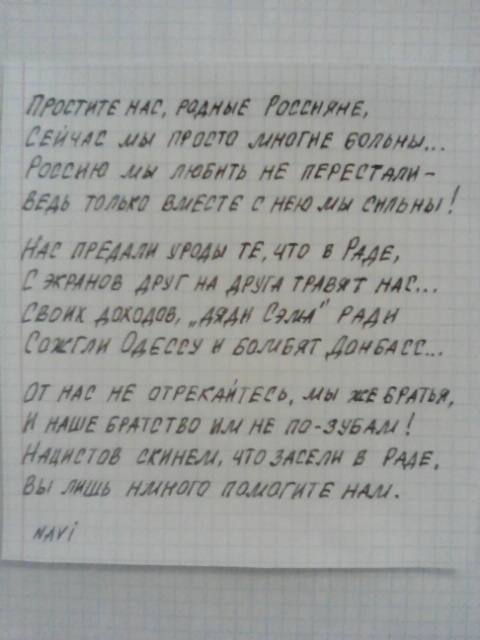 Простите нас, родные Россияне,
Сейчас мы просто многие больны...
Россию мы любить не перестали-
Ведь только вместе с нею мы сильны!
Нас предали уроды те, что в Раде,
С экранов друг на друга травят нас...
Своих доходов, „дяди Сэма" ради
Сожгли Одессу и бомбят Донбасс...
От нас не отрекайтесь, мы же братья,
И наше братство им не по-зубам!
Нацистов скинем, что засели в Раде,
Вы лишь нмного помогите нам.
NAVi